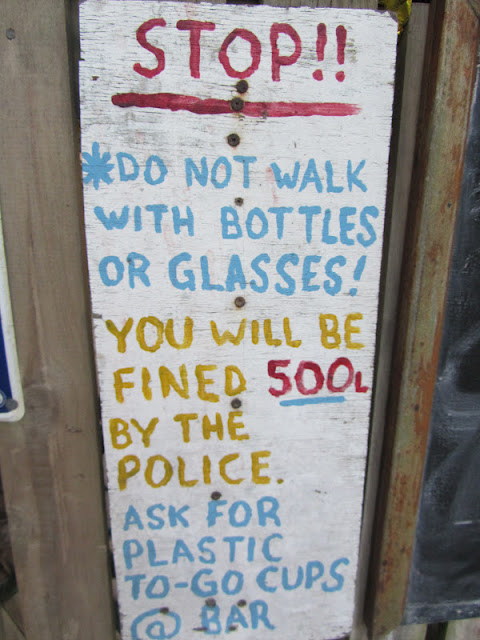 STOP!!
*DO NOT WALK
WITH BOTTLES
OR GLASSES!
YOU WILL BE
FINED 500L
BY THE
POLICE.
ASK FOR
PLASTIC
TO-GO CUPS
@ BAR